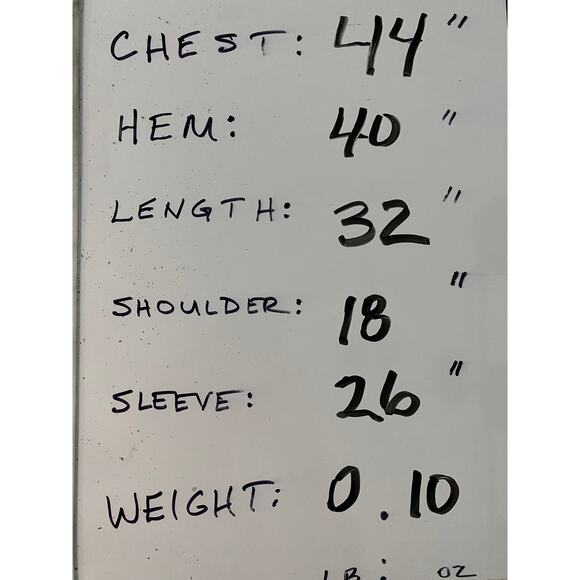 CHEST: 44"
HEM: 40"
LENGTH: 32"
SHOULDER: 18"
SLEEVE: 26"
WEIGHT: 0.10
LB: OZ